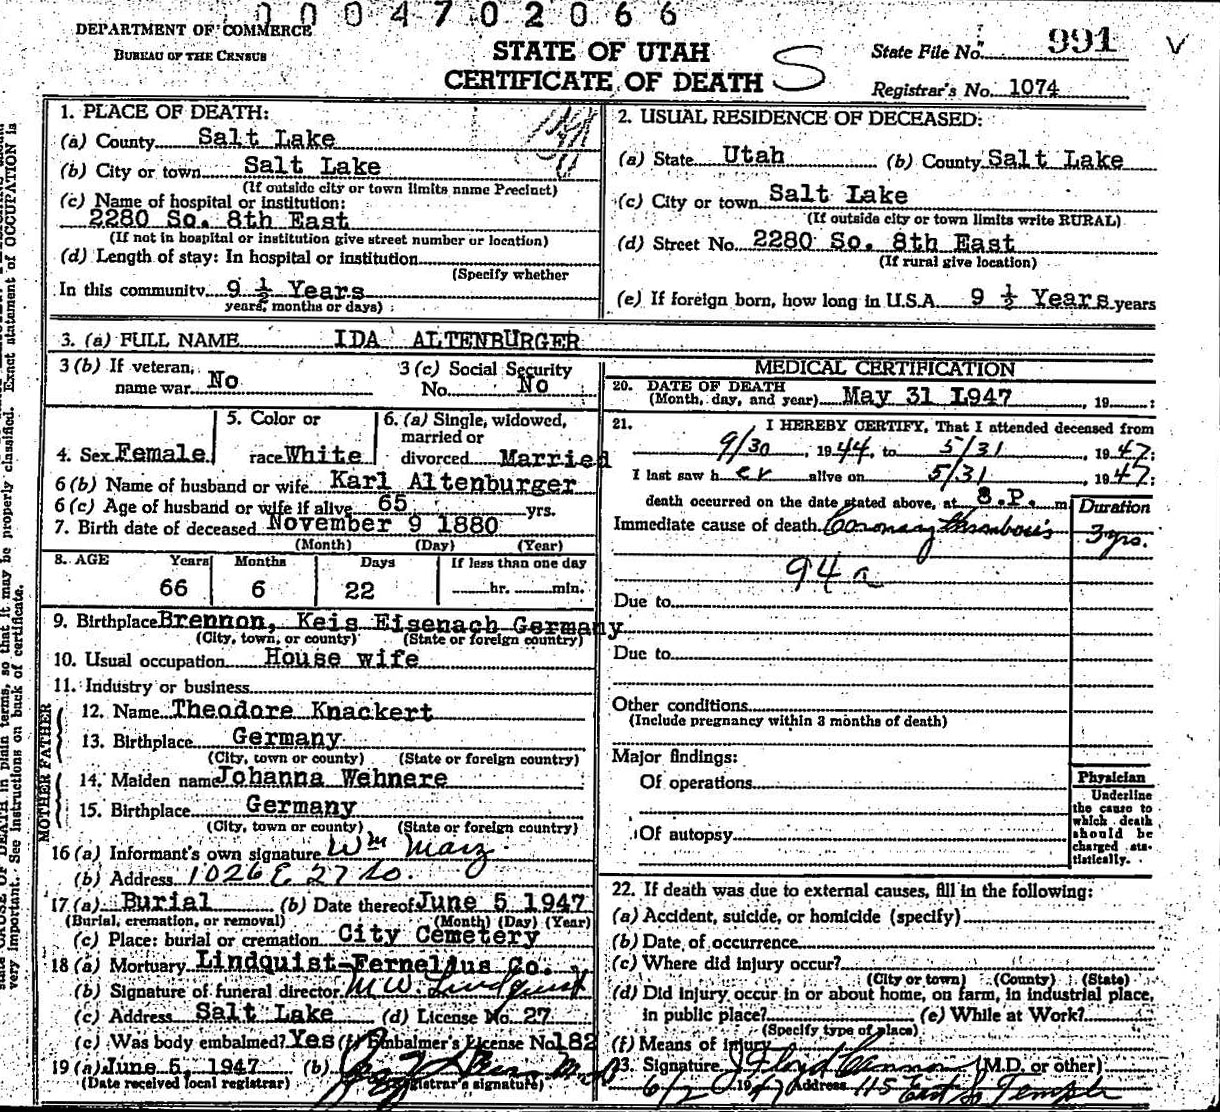 0004702066
DEPARTMENT OF COMMERCE
BUREAU OF THE CENSUS
STATE OF UTAH
CERTIFICATE OF DEATH S
State File No. 991 V
Registrar's No. 1074
1. PLACE OF DEATH:
(a) County Salt Lake
(b) City or town Salt Lake
(If outside city or town limits name Precinct)
(c) Name of hospital or institution:
2280 So. 8th East
(If not in hospital or institution give street number or location)
(d) Length of stay: In hospital or institution
(Specify whether
In this community 9 ½ Years
years, months or days)
2. USUAL RESIDENCE OF DECEASED:
(a) State Utah (b) County Salt Lake
(c) City or town Salt Lake
(If outside city or town limits write RURAL)
(d) Street No. 2280 So. 8th East
(If rural give location)
(e) If foreign born, how long in U.S.A. 9 ½ Years years
3. (a) FULL NAME IDA ALTENBURGER
3 (b) If veteran,
name war No
3 (c) Social Security
No. No
4. Sex Female
5. Color or
race White
6. (a) Single, widowed,
married or
divorced Married
6 (b) Name of husband or wife Karl Altenburger
6 (c) Age of husband or wife if alive 65 yrs.
7. Birth date of deceased November 9 1880
(Month) (Day) (Year)
8. AGE Years Months Days If less than one day
66 6 22 hr. min.
9. Birthplace Brennon, Keis Eisenach Germany
(City, town, or county) (State or foreign country)
10. Usual occupation House wife
11. Industry or business
FATHER
12. Name Theodore Knackert
13. Birthplace Germany
(City, town or county) (State or foreign country)
MOTHER
14. Maiden name Johanna Wehnere
15. Birthplace Germany
(City, town or county) (State or foreign country)
16 (a) Informant's own signature Wm Marz
(b) Address 1026 E 27 So.
17 (a) Burial (b) Date thereof June 5 1947
(Burial, cremation, or removal) (Month) (Day) (Year)
(c) Place: burial or cremation City Cemetery
18 (a) Mortuary Lindquist-Fernelius Co.
(b) Signature of funeral director M W. Lindquist
(c) Address Salt Lake (d) License No. 27
(e) Was body embalmed? Yes (f) Embalmer's License No. 182
19 (a) June 5, 1947 (b)
(Date received local registrar) Registrar's signature)
MEDICAL CERTIFICATION
20. DATE OF DEATH
(Month, day, and year) May 31 1947, 19
21. I HEREBY CERTIFY, That I attended deceased from
9/30, 1944, to 5/31, 1947;
I last saw her alive on 5/31, 1947;
death occurred on the date stated above, at 8.P. m
Duration
Immediate cause of death Coronary thrombosis 3 yrs.
94a
Due to
Due to
Other conditions
(Include pregnancy within 3 months of death)
Major findings:
Of operations
Of autopsy
Physician
Underline
the cause to
which death
should be
charged sta-
tistically.
22. If death was due to external causes, fill in the following:
(a) Accident, suicide, or homicide (specify)
(b) Date of occurrence
(c) Where did injury occur?
(City or town) (County) (State)
(d) Did injury occur in or about home, on farm, in industrial place,
in public place? (e) While at Work?
(Specify type of place)
(f) Means of injury
23. Signature J Floyd Cannon (M.D. or other)
6/2 1947 Address 115 East So Temple
CAUSE OF DEATH in plain terms, so that it may be properly classified. Exact statement of OCCUPATION is
very important. See instructions on back of certificate.